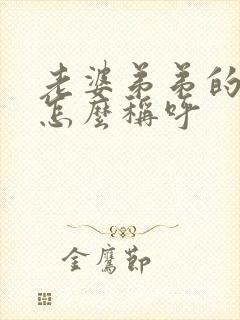 老婆弟弟的
怎麼稱呼
金鷹節